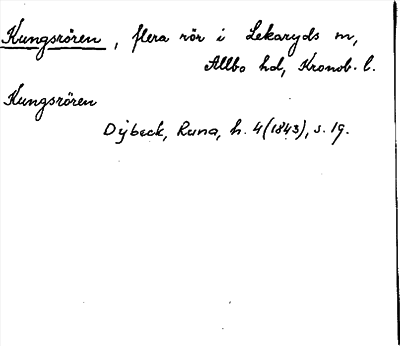 Kungsrören, flera rör i Lekaryds m,
Allbo hd, Kronob. l.
Kungsrören
Dybeck, Runa, h. 4(1843), s. 19.